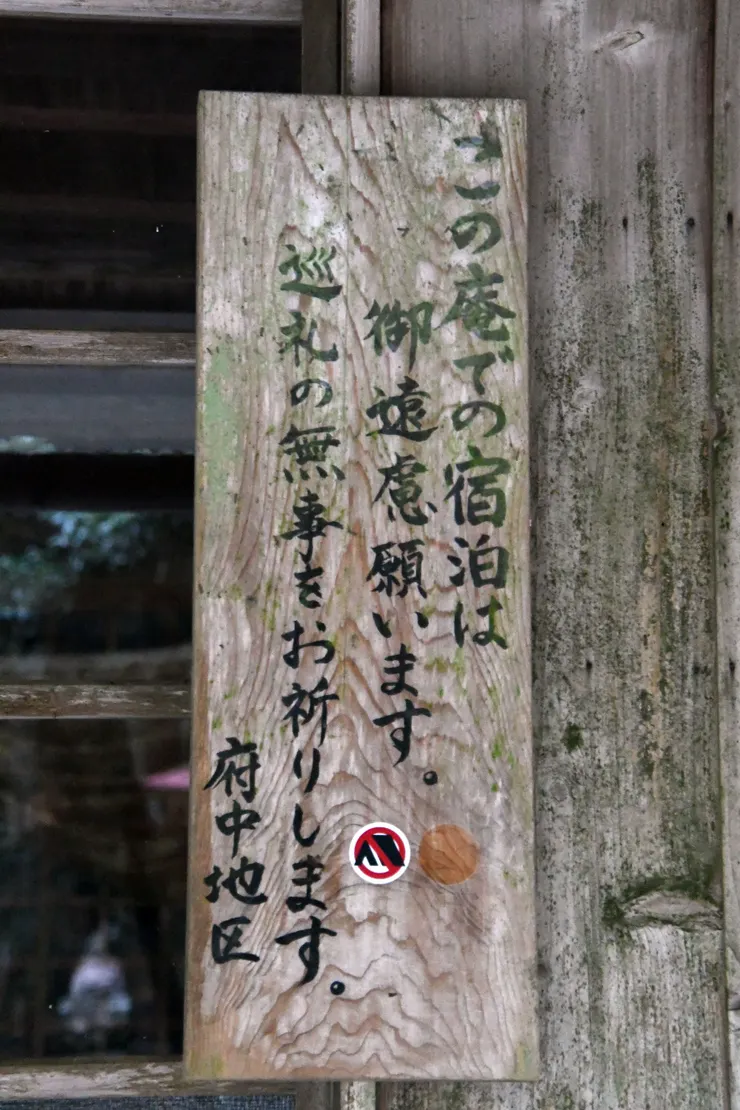 この庵での宿泊は
御遠慮願います。
巡礼の無事をお祈りします。
府中地区